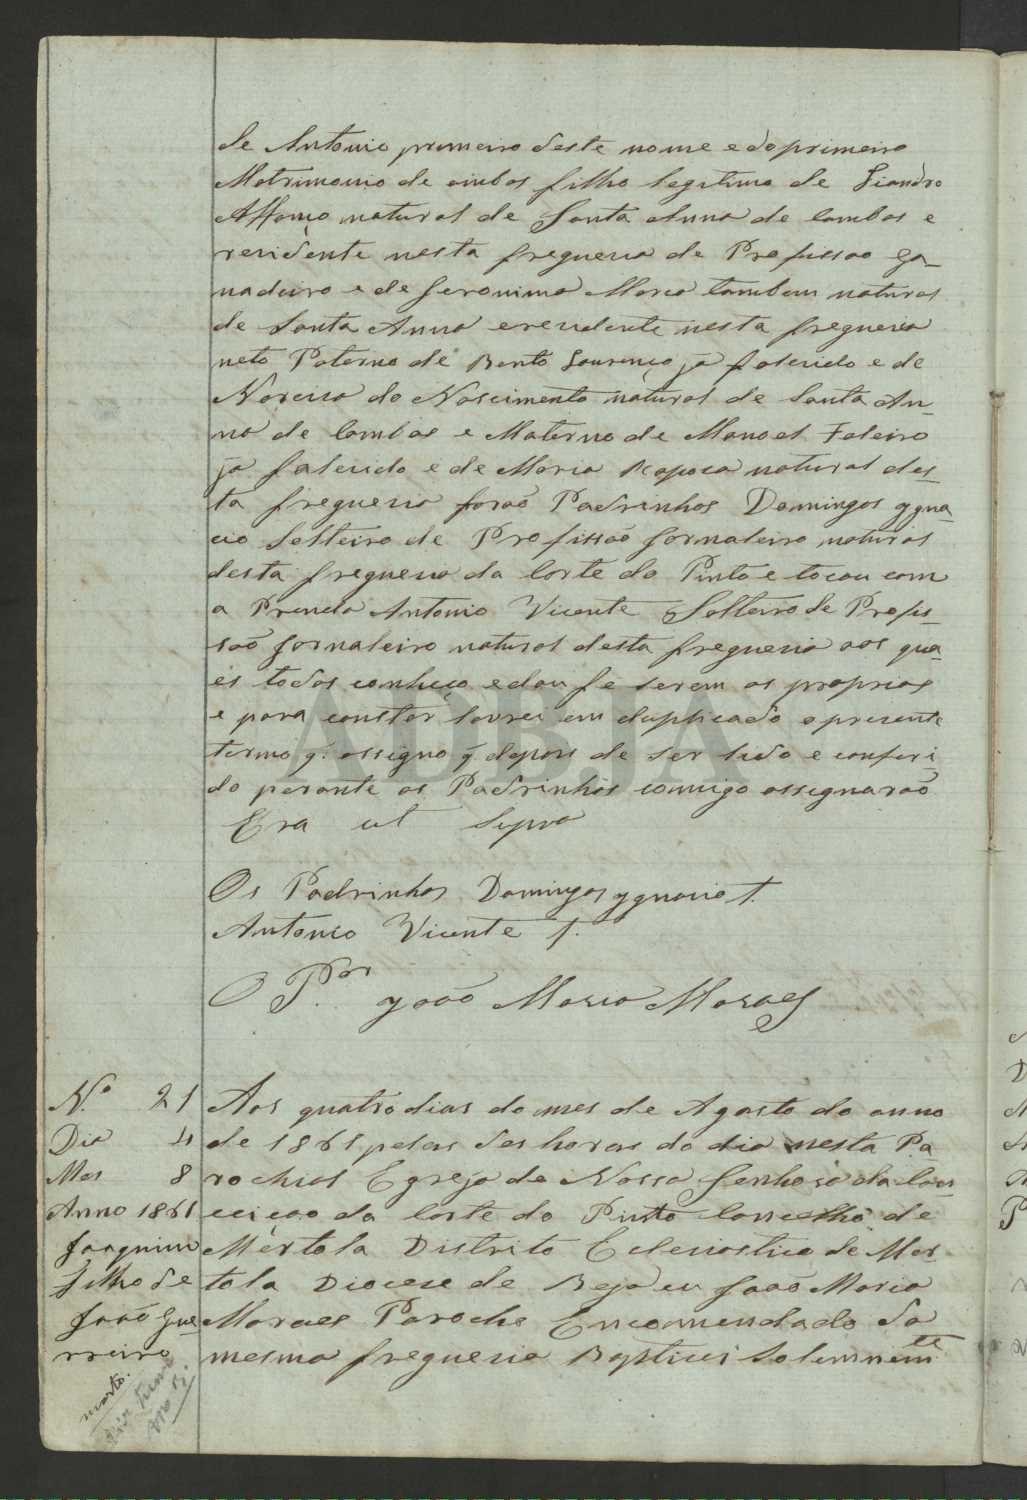 de Antonio primeiro deste nome e do primeiro
Matrimonio de ambos filho legitimo de Liandro
Affonço natural de Santa Anna de Cambas e
rezidente nesta freguezia de Profissao Ga-
nadeiro e de Jeronima Maria tambem natural
de Santa Anna e rezidente nesta freguezia
neto Paterno de Bento Lourenço ja falecido e de
Narciza do Nascimento natural de Santa An-
na de Cambas e Materno de Manoel Faleiro
ja falecido e de Maria Rapoza natural des-
ta freguezia foraõ Padrinhos Domingos Ygna-
cio Solteiro de Profissaõ Jornaleiro natural
desta freguezia da Corte do Pinto e tocou com
a Prenda Antonio Vicente Solteiro de Profis-
saõ Jornaleiro natural desta freguezia aos qua-
es todos conheço e dou fe serem os proprios
e para constar lavrei em duplicado o prezente
termo q. assigno q depois de ser lido e conferi
do perante os Padrinhos comigo assignaraõ
Era ut supra
Os Padrinhos Domingos Ygnacio †.
Antonio Vicente †.
O P.or Yoaõ Maria Moraes
N.o 21 Aos quatro dias do mes de Agosto do anno
Dia 4 de 1861 pelas des horas do dia nesta Pa
Mes 8 rochial Egreja de Nossa Senhora da Con
Anno 1861 ceicao da Corte do Pinto Concelho de
Joaquim Mértola Distrito Eclesiastico de Mer
filho de tola Diocese de Beja eu Joaõ Maria
Joaõ Gue Moraes Paroche Encomendado da
rreiro mesma freguezia Baptizei Solemnemte
morto.
ADBJA